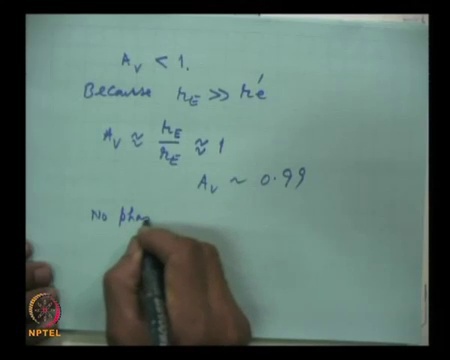 A_V < 1.
Because r_E >> r'e
A_V ≈ r_E / r_E ≈ 1
A_V ~ 0.99
No phas
NPTEL